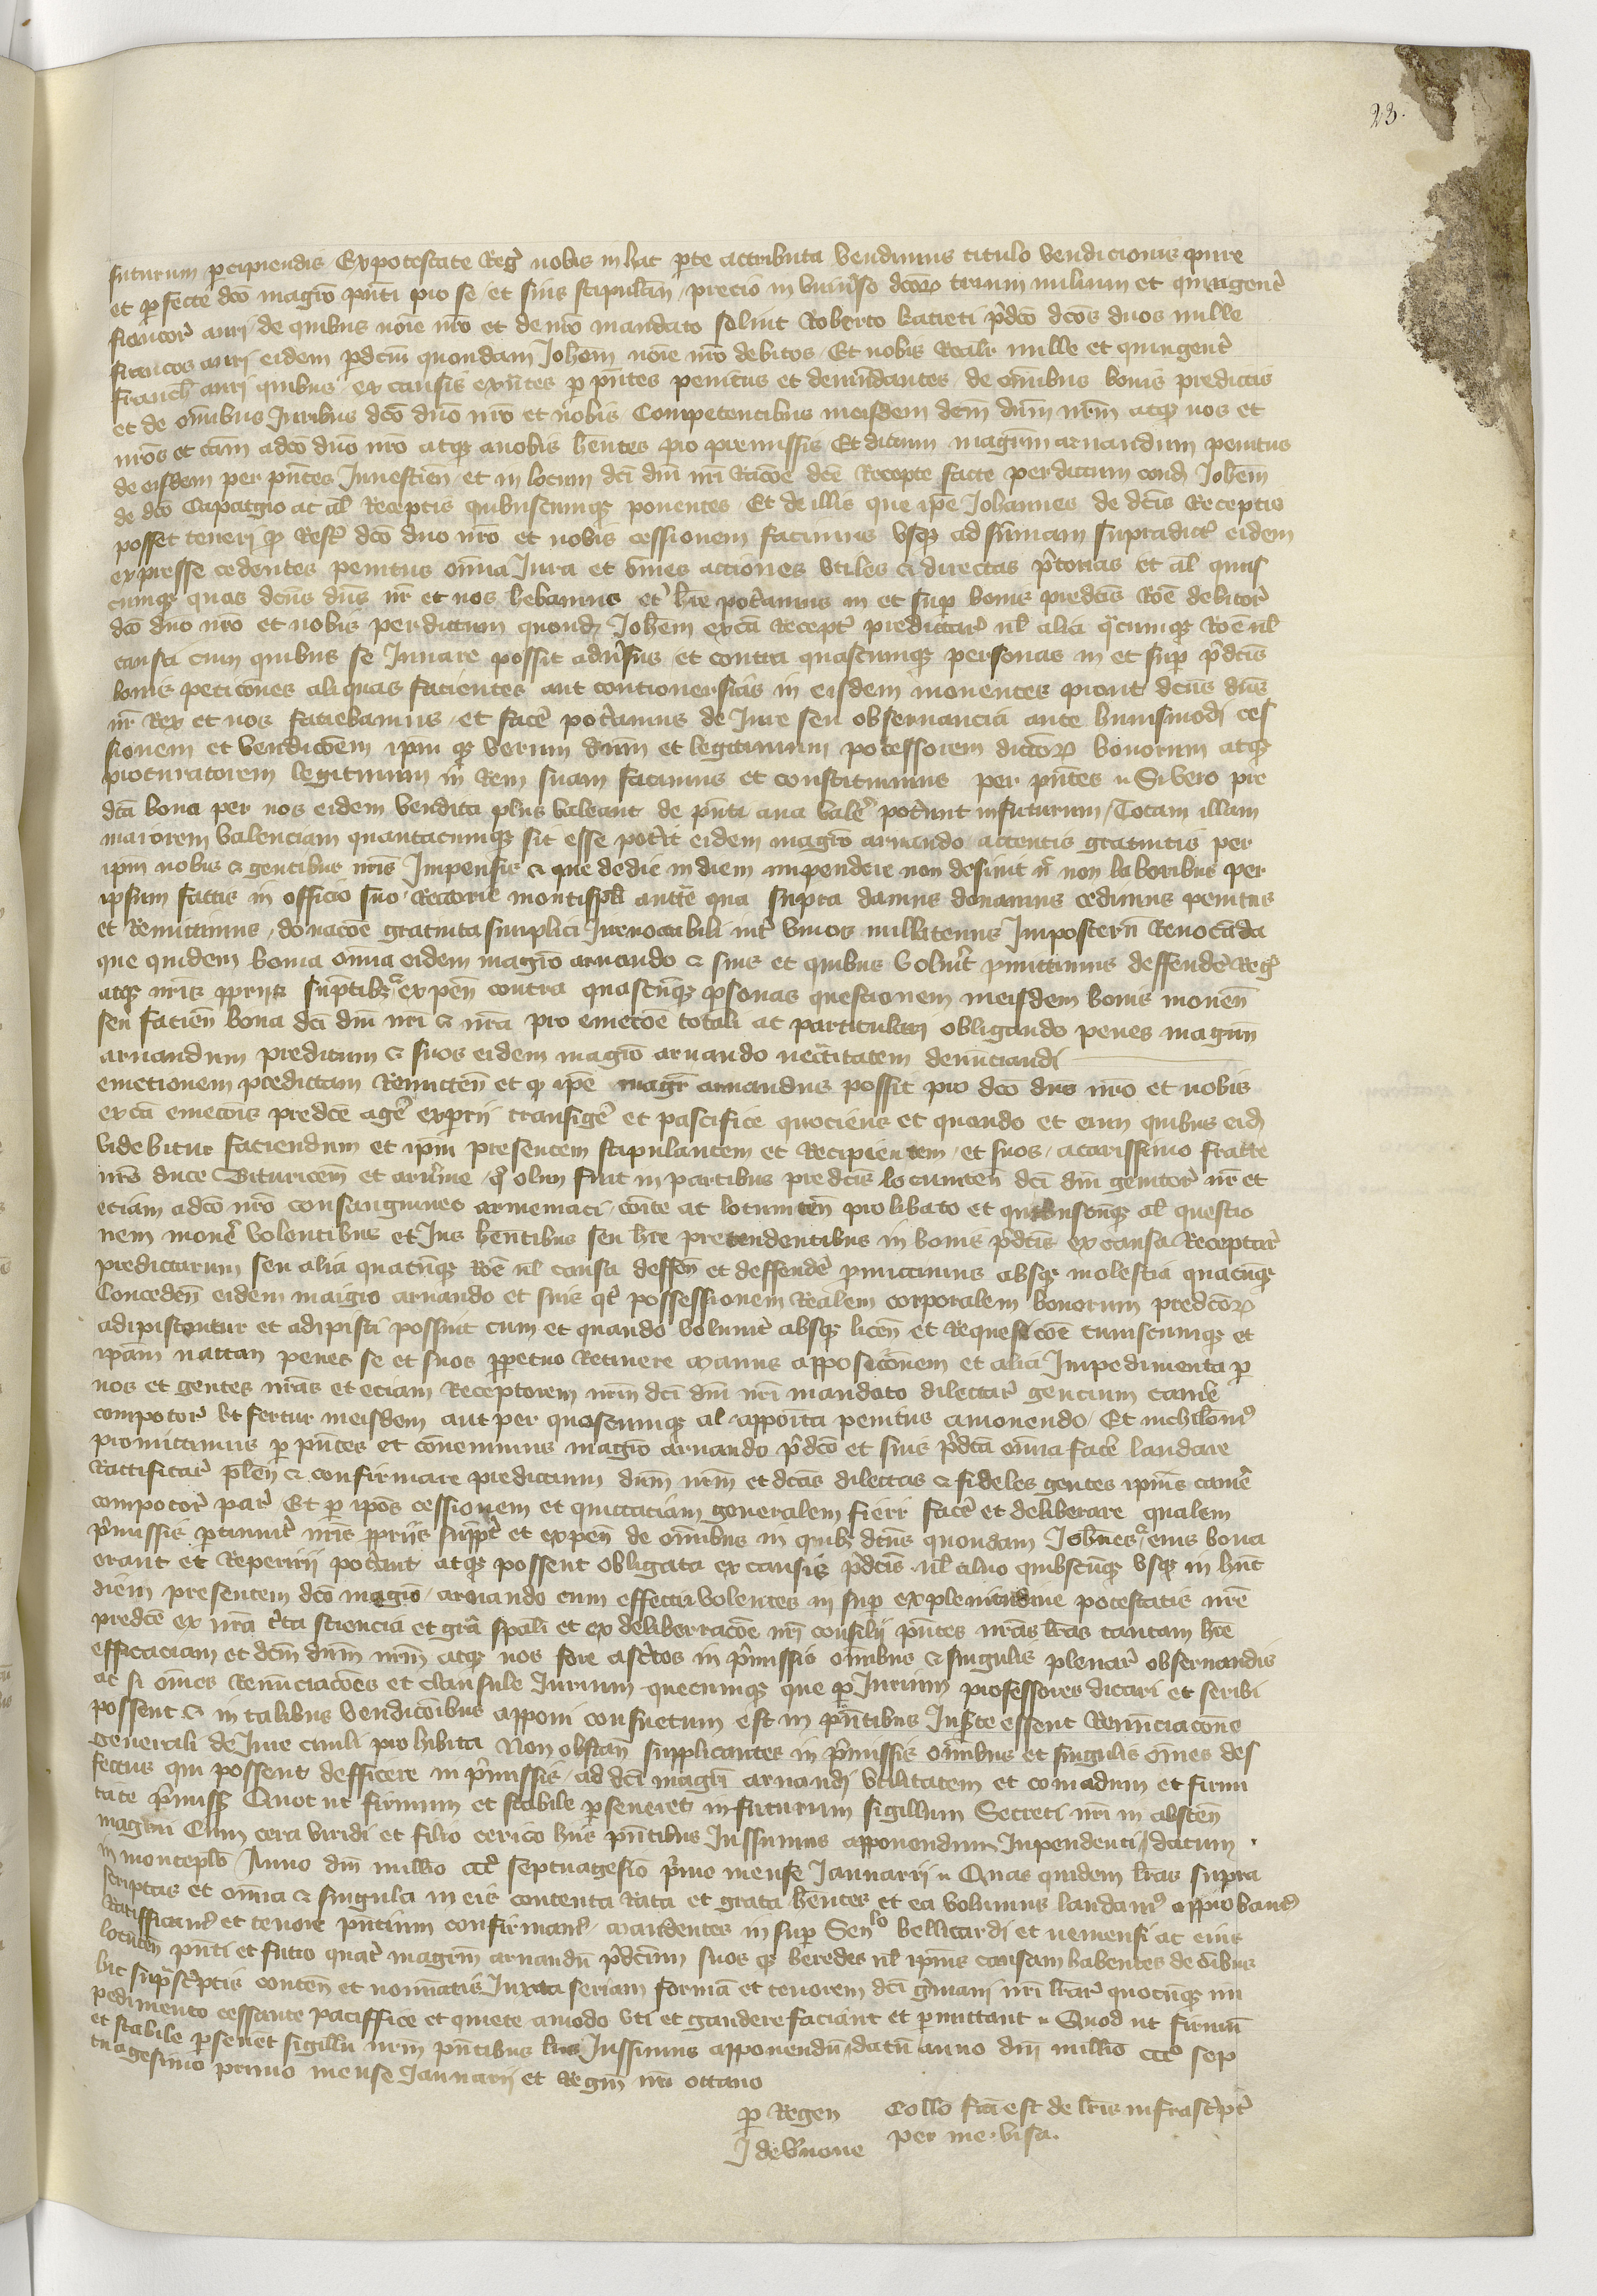 23.
futurum percipiendis Ex potestate Regia nobis in hac parte attributa vendimus titulo vendicionis pure
et perfecte dco magro pnti pro se et suis stipulan precio in universo dcor trium milium et quingent
francor auri de quibus noie nro et de nro mandato solvit Roberto predco dcos duos mille
francos auri eidem pdcm quondam Johem noie nro debitos Et nobis Realr mille et quingent
franch auri quibus ex causis exntes p pntes penitus et denudantes de omibus bonis predictis
et de omibus Juribus dco dno nro et nobis Competentibus in eisdem dcm dnm nrm atq nos et
nros et cam a dco dno nro atq a nobis hentes pro premissis Et dictum magrm arnaudum penitus
de eisdem per pntes Investien et in locum dci dni nri Racoe dce Recepte facte per dictum cond Johem
de dco Capatgio ac al Receptis quibuscumq ponentes Et de illis que ipe Johannes de dcis Receptis
posset teneri p Rest dco dno nro et nobis cessionem facimus usq ad summam supradict eidem
expresse cedentes penitus omia Jura et omes actiones utiles et directas ptorias et al quas
cumq quas dcus dns nr et nos hebamus et hre potamus in et sup bonis predcis Roe debitor
dco dno nro et nobis per dictum quond Johem ex ca Recept predictar vl alia qcumq Roe vl
causa cum quibus se Juvare possit adversus et contra quascumq personas in et sup pdcis
bonis peticones aliquas facientes aut controversias in eisdem moventes prout dcus dns
nr Rex et nos faciebamus et face potamus de Jure seu observancia ante huiusmodi ces
sionem et vendicoem ipm q verum dnm et legitimum possessorem dictor bonorum atq
procuratorem legitimum in Rem suam facimus et constituimus per pntes Si vero pre
dca bona per nos eidem vendita plus valeant de pnti aut vale potunt infuturum Totam illam
maiorem valenciam quantacumq sit esse potit eidem magro arnaudo attentis gratuitis per
ipm nobis et gentibus nris Impensis et que de die in diem impendere non desinit n non laboribus per
ipsum factis in officio suo Rectorie montispli auctte qua supra damus donamus cedimus penitus
et Remittimus donacoe gratuita simplici Irrevocabili int vivos nullatenus Imposterm Revocada
que quidem bona omia eidem magro arnaudo et suis et quibus voluit pmittimus deffende Reg
atq nris ppriis suptibz expen contra quascuq psonas questionem in eisdem bonis moven
seu facien bona dci dni nri et nra pro evictoe totali ac particulari obligando penes magrm
arnaudum predictum et suos eidem magro arnaudo necessitatem denunciandi
evictionem predictam Remitten et q ipe magr arnaudus possit pro dco dno nro et nobis
ex ca evictois predce age expri transige et pascifice quociens et quando et cum quibus eid
videbitur faciendum et ipm presentem stipulantem et Recipientem et suos a carissimo fratre
nro duce Bituricen et arvnie q olim fuit in partibus predcis locumten dci dni genitor nr et
etiam a dco nro consanguineo armeniaci coite ac locumten prolibato et quibuscuq al questio
nem move volentibus et Jus hentibus seu hre pretendentibus in bonis pdcis ex causa Receptar
predictarum seu alia quacuq Roe vl causa deffen et deffende pmittimus absq molestia quacuq
Conceden eidem maigro arnaudo et suis qt possessionem Realem corporalem bonorum predcor
adipiscantur et adipisci possint cum et quando volunt absq licen et Requesicoe cuiuscumq et
ipam nactam penes se et suos ppetuo Retinere manus apposicionem et alia Impedimenta p
nos et gentes nras et eciam Receptorem nrm dci dni nri mandato dilectar gencium camere
compotor ut fertur in eisdem aut per quoscumq al apposita penitus amovendo Et nichilomi
promittimus p pntes et convenimus magro arnaudo pdco et suis pdca omia face laudare
Rattificar plen et confirmare predictum dnm nrm et dcas dilectas et fideles gentes ipius came
compotor par Et p ipos cessionem et quittaciam generalem fieri face et deliberare qualem
pmissis ptinuit nris ppriis supt et expen de omibus in quib dcus quondam Johnes eius bona
erant et Reperirii potant atq possent obligata ex causis pdcis vl alio quibscuq usq in hunc
diem presentem dco magro arnaudo cum effectu volentes in sup ex plenitudine potestatis nre
predce ex nra cta sciencia et gra spali et ex deliberracoe nri consilij pntes nras lras tantam hre
efficaciam et dcm dnm nrm atq nos fore astctos in pmissis omibus et singulis plenar observandis
ac si omes Renunciacoes et clausule Jurium quecumq que p Jurium professores dictari et scribi
possent et in talibus vendicoibus apponi consuetum est in pntibus Inserte essent Renunciacone
generali de Jure civili prohibita Non obstan supplicantes in pmissis omibus et singulis omes def
fectus qui possent defficere in pmissis ad dci magri arnaudi utilitatem et comodum et firmi
tate pmiss Quot ut firmum et stabile pseveret infuturum sigillum Secreti nri in absten
magni Cum cera viridi et filio cerico hiis pntibus Jussimus apponendum Inpendenti datum
in montepllo Anno dni millio ccc septuagesio pmo mense Januarii Quas quidem lras supra
scriptas et omia et singula in eis contenta Rata et grata hentes et ea volumus laudam approbam
Ratifficam et tenore pntium confirmam mandentes in sup Senllo bellicardi et nemensi ac eius
locuten pnti et futro quat magrm arnaudu pdctum suos q heredes vl ipius causam habentes de oibus
hic suprasctptis conten et nominatis Juxta seriam forma et tenorem dci gmani nri lrar quocuq im
pedimento cessante paciffice et quiete amodo uti et gaudere faciant et pmittant Quod ut firmu
et stabile pseveret sigillu nrm pntibus lris Jussimus apponendu datu anno dni millio ccc sep
tuagesimo primo mense Januarij et Regni nri octavo
p Regem Collo fca est de lris infrasctpt
J de Vnone per me visa.